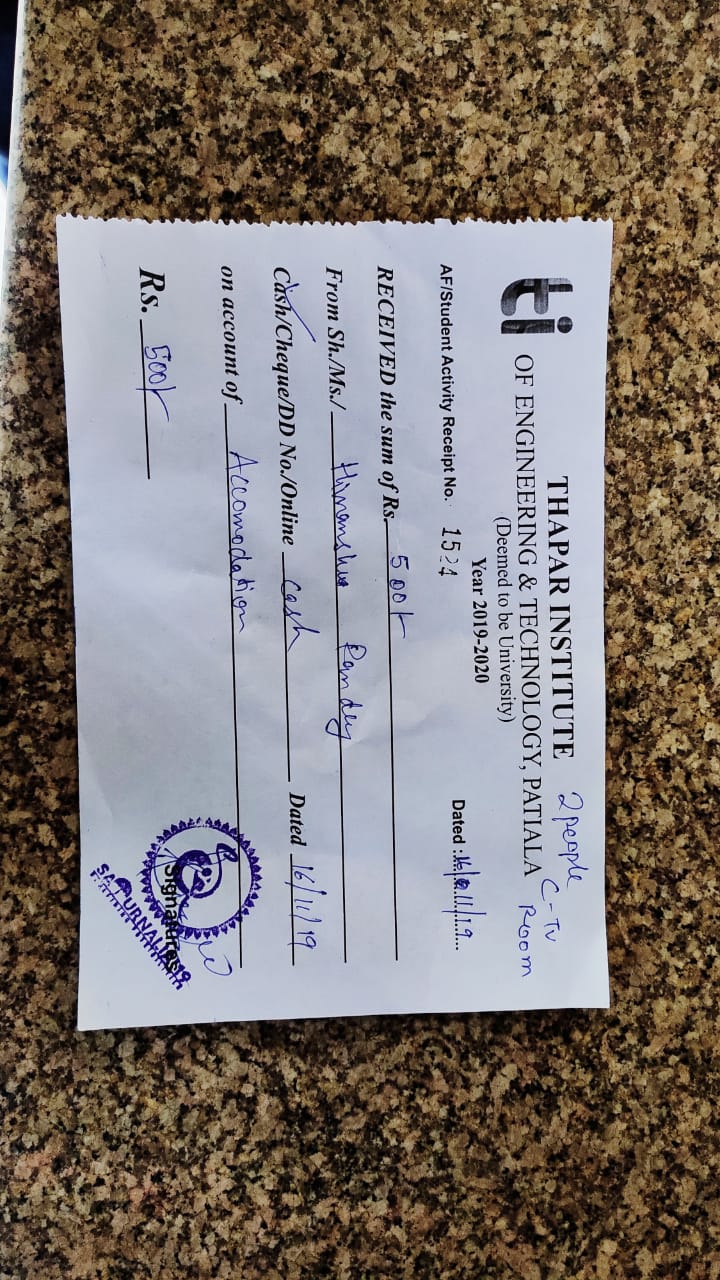 ti
THAPAR INSTITUTE
OF ENGINEERING & TECHNOLOGY, PATIALA
(Deemed to be University)
Year 2019-2020
2 people
C-TV
Room
AF/Student Activity Receipt No. 1524
Dated : 16/11/19
RECEIVED the sum of Rs. 500/-
From Sh./Ms./ Himanshu Pandey
Cash/Cheque/DD No./Online cash Dated 16/11/19
on account of Accomodation
Rs. 500/-
Signatures
SATURNALIA'19